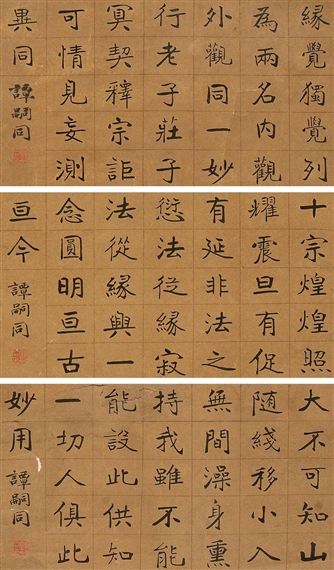 緣覺獨覺列
為兩名内觀
外觀同一妙
行老子莊子
冥契釋宗詎
可情見妄測
異同 譚嗣同
十宗煌煌照
耀震旦有促
有延非法之
愆法從緣寂
法從緣興一
念圓明亘古
亘今 譚嗣同
大不可知山
随綫移小入
無間澡身熏
持我雖不能
能設此供知
一切人俱此
妙用 譚嗣同